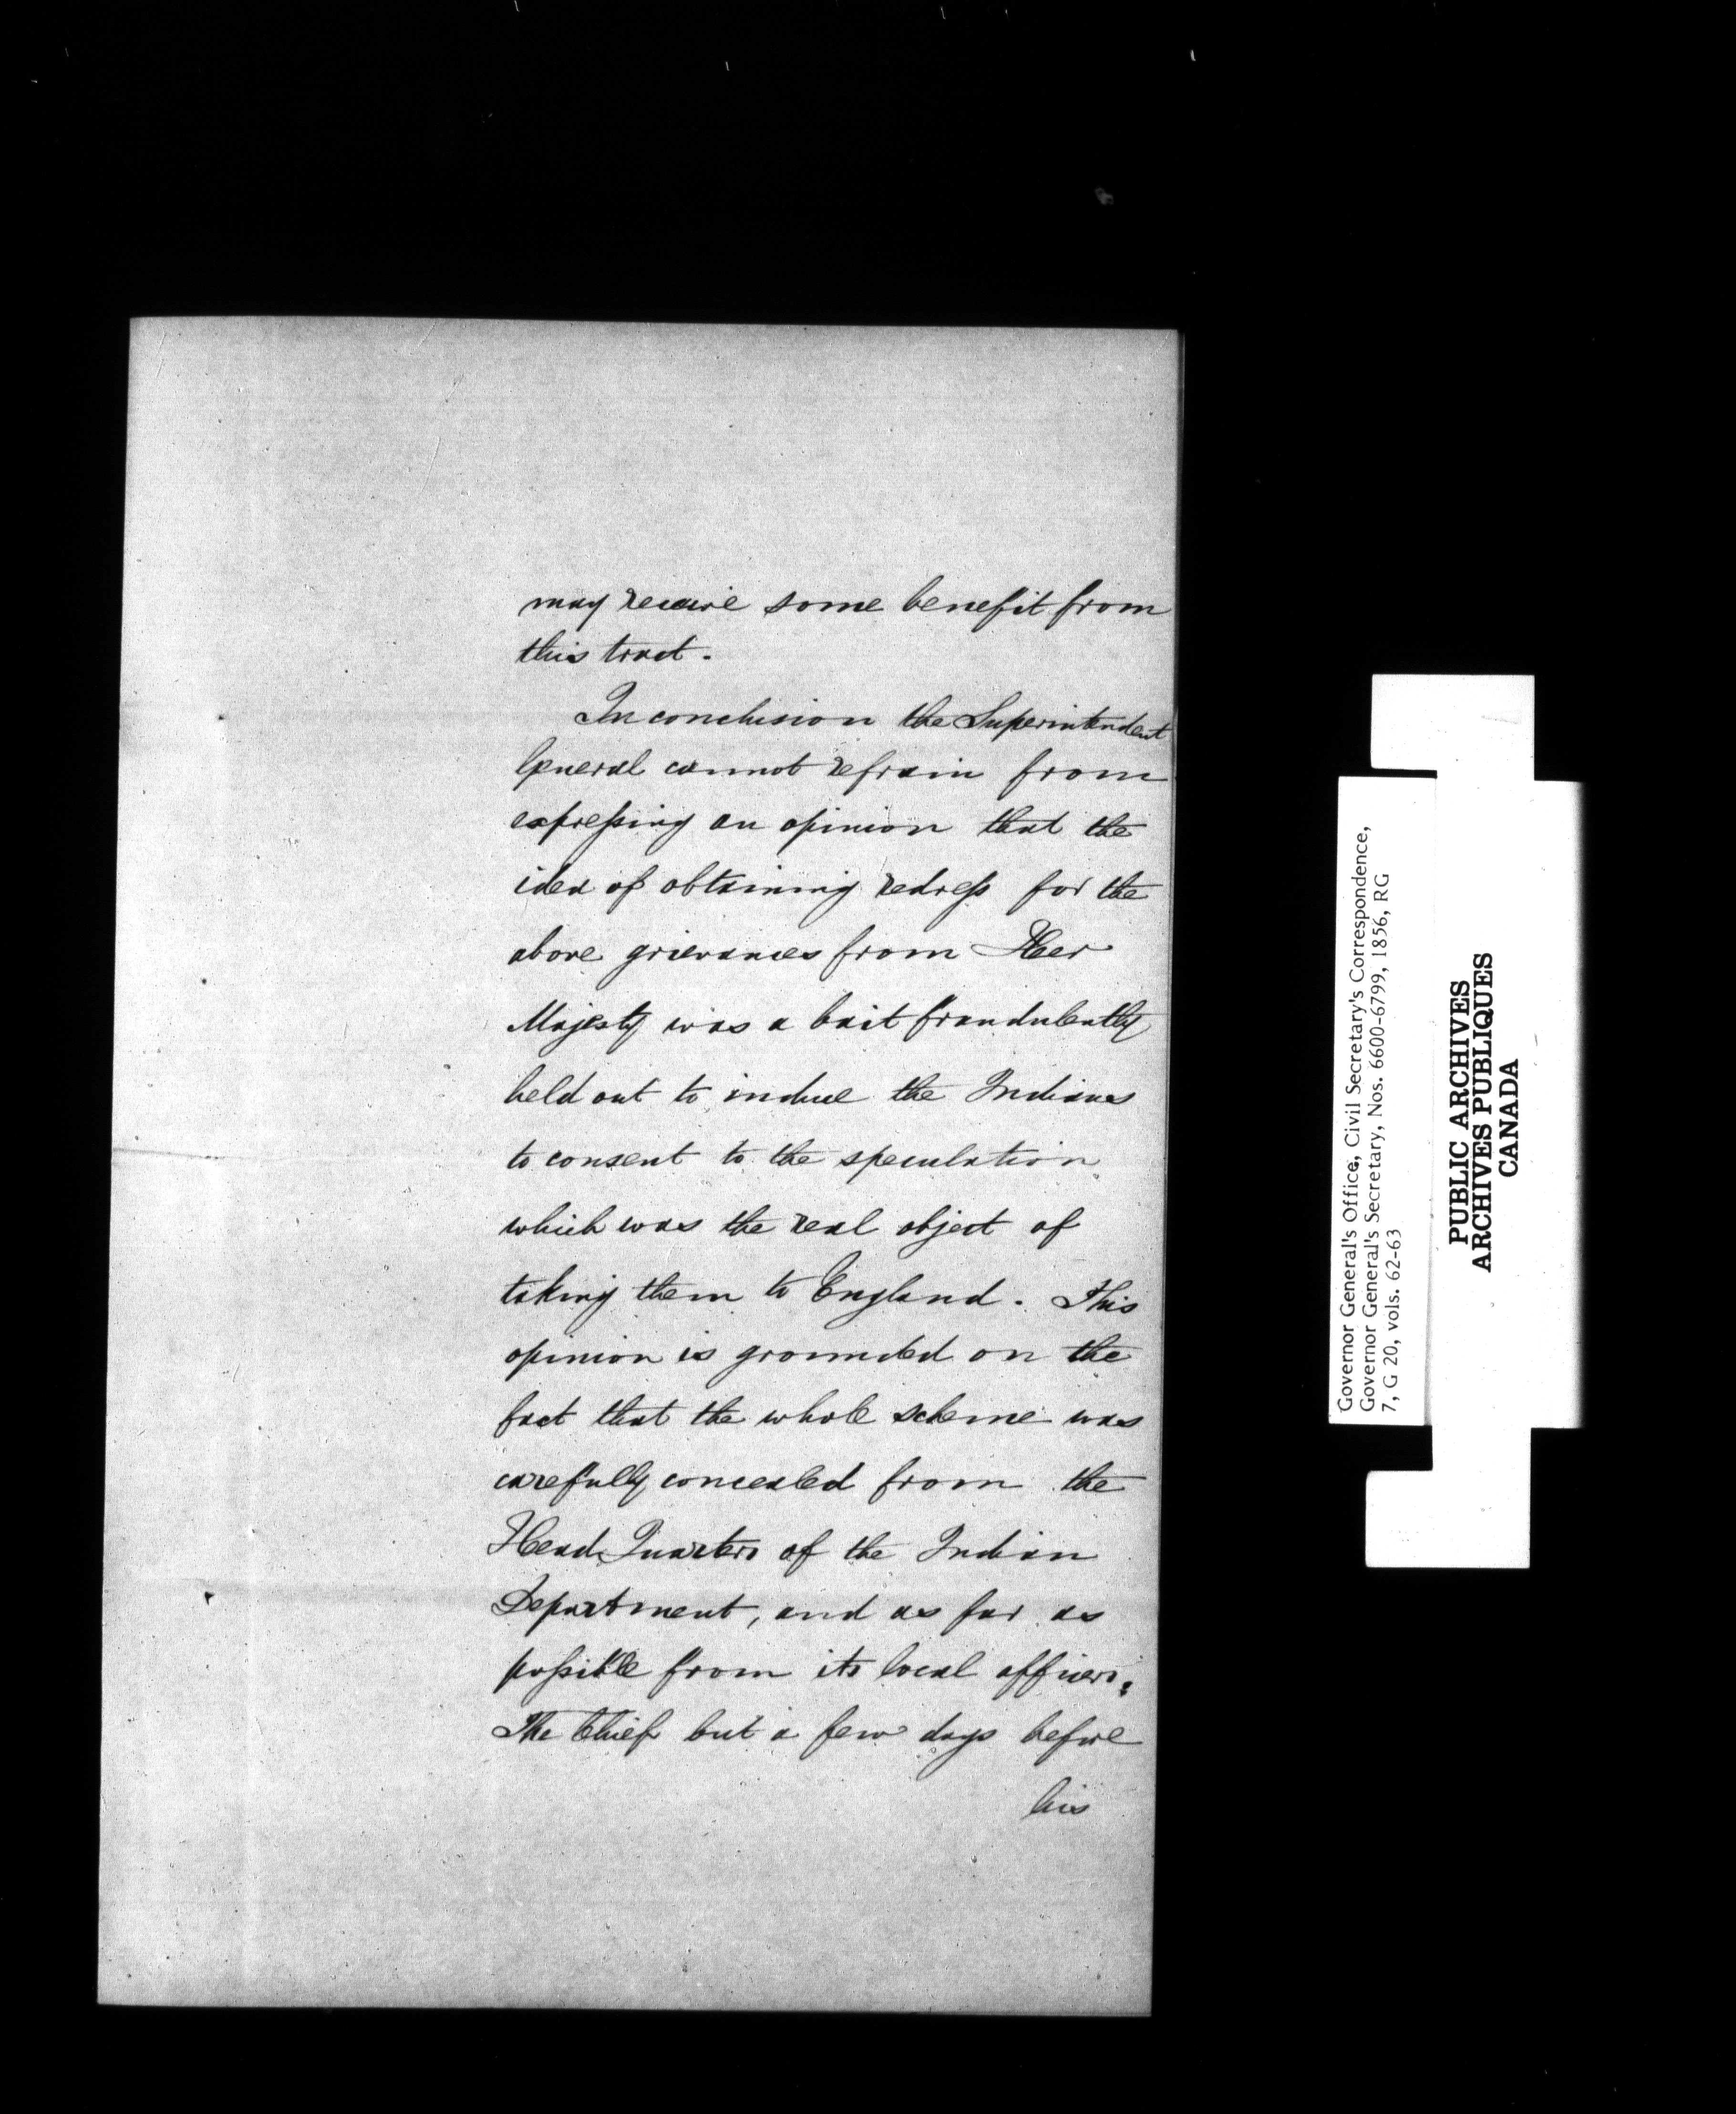 may receive some benefit from
this tract.
In conclusion the Superintendent
General cannot refrain from
expressing an opinion that the
idea of obtaining redress for the
above grievances from Her
Majesty was a bait fraudulently
held out to induce the Indians
to consent to the speculation
which was the real object of
taking them to England. This
opinion is grounded on the
fact that the whole scheme was
carefully concealed from the
Head Quarters of the Indian
Department, and as far as
possible from its local officers.
The Chief but a few days before
his
Governor General's Office, Civil Secretary's Correspondence,
Governor General's Secretary, Nos. 6600-6799, 1856, RG
7, G 20, vols. 62-63
PUBLIC ARCHIVES
ARCHIVES PUBLIQUES
CANADA